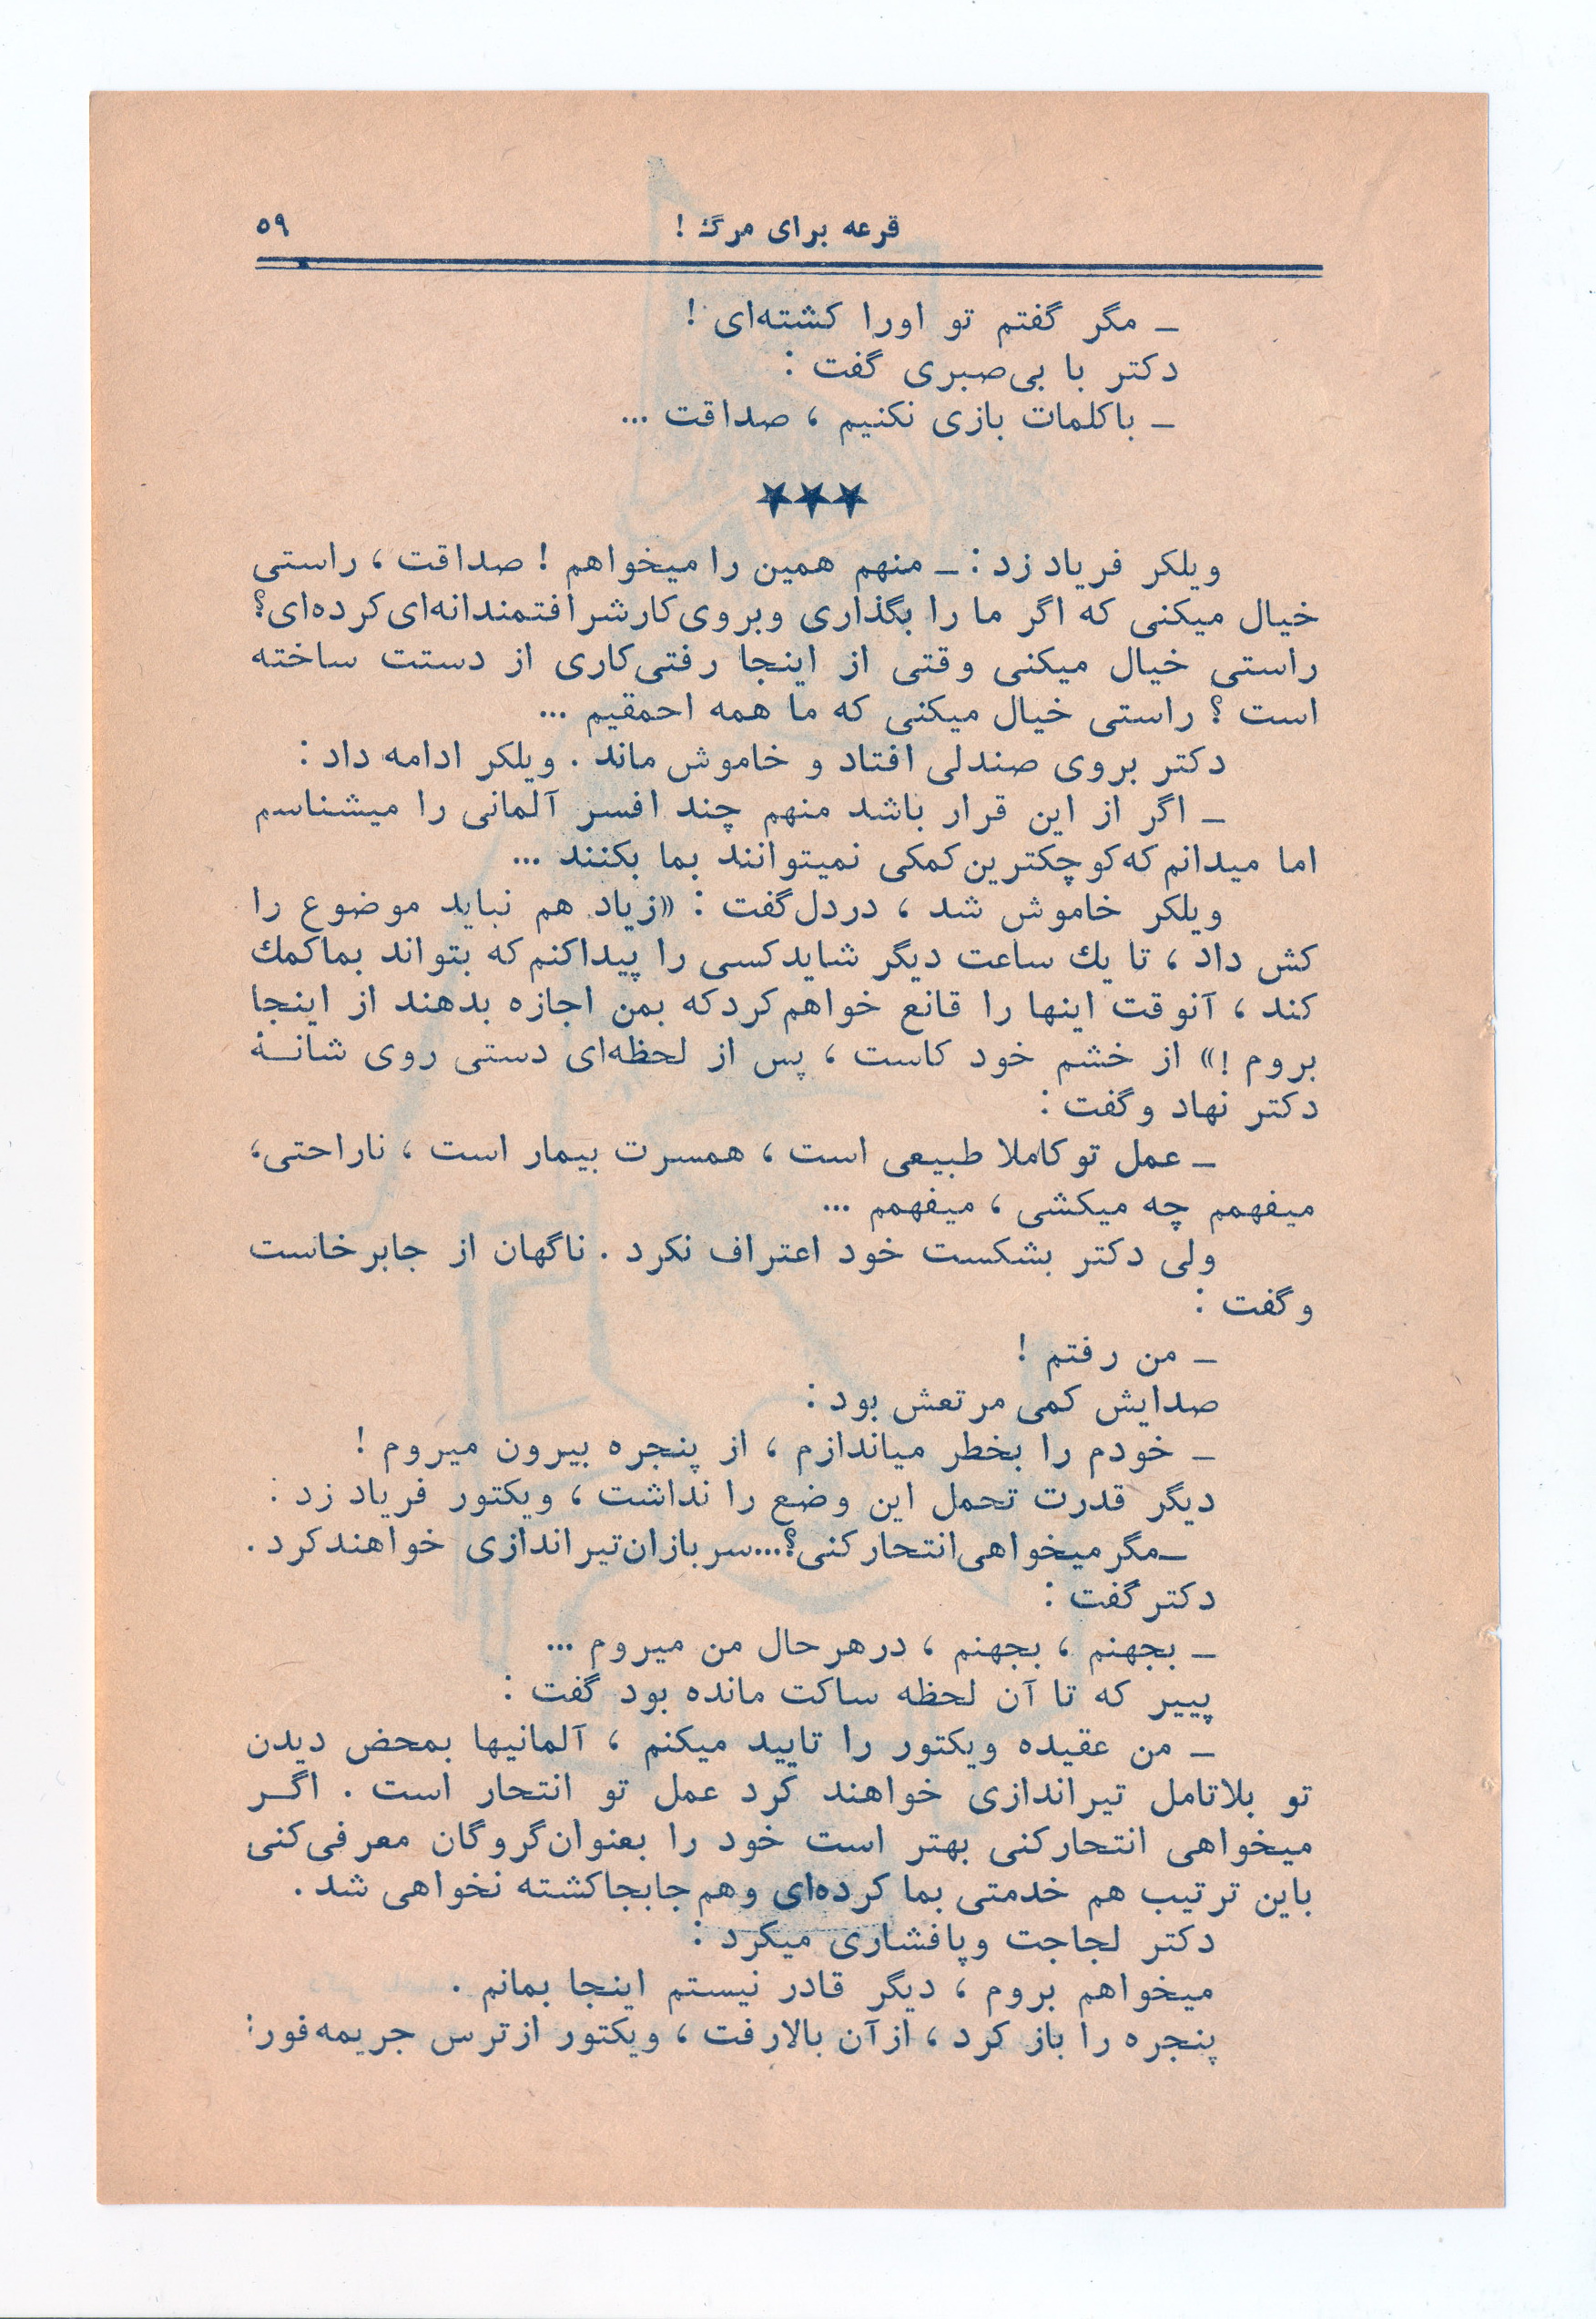 قرعه برای مرگ !
۵۹
ــ مگر گفتم تو اورا کشته‌ای !
دکتر با بی‌صبری گفت :
ــ باکلمات بازی نکنیم ، صداقت ...
★★★
ویلکر فریاد زد : ــ منهم همین را میخواهم ! صداقت ، راستی
خیال میکنی که اگر ما را بگذاری وبروی کار شرافتمندانه‌ای کرده‌ای؟
راستی خیال میکنی وقتی از اینجا رفتی کاری از دستت ساخته
است ؟ راستی خیال میکنی که ما همه احمقیم ...
دکتر بروی صندلی افتاد و خاموش ماند . ویلکر ادامه داد :
ــ اگر از این قرار باشد منهم چند افسر آلمانی را میشناسم
اما میدانم که کوچکترین کمکی نمیتوانند بما بکنند ...
ویلکر خاموش شد ، در دل گفت : «زیاد هم نباید موضوع را
کش داد ، تا یك ساعت دیگر شاید کسی را پیدا کنم که بتواند بما کمك
کند ، آنوقت اینها را قانع خواهم کرد که بمن اجازه بدهند از اینجا
بروم !» از خشم خود کاست ، پس از لحظه‌ای دستی روی شانــهٔ
دکتر نهاد و گفت :
ــ عمل تو کاملا طبیعی است ، همسرت بیمار است ، ناراحتی،
میفهمم چه میکشی ، میفهمم ...
ولی دکتر بشکست خود اعتراف نکرد . ناگهان از جا برخاست
و گفت :
ــ من رفتم !
صدایش کمی مرتعش بود :
ــ خودم را بخطر میاندازم ، از پنجره بیرون میروم !
دیگر قدرت تحمل این وضع را نداشت ، ویکتور فریاد زد :
ــ مگر میخواهی انتحار کنی؟...سربازان تیراندازی خواهند کرد .
دکتر گفت :
ــ بجهنم ، بجهنم ، درهر حال من میروم ...
پییر که تا آن لحظه ساکت مانده بود گفت :
ــ من عقیده ویکتور را تایید میکنم ، آلمانیها بمحض دیدن
تو بلاتامل تیراندازی خواهند کرد عمل تو انتحار است . اگــر
میخواهی انتحار کنی بهتر است خود را بعنوان گروگان معرفی کنی
باین ترتیب هم خدمتی بما کرده‌ای وهم جابجا کشته نخواهی شد .
دکتر لجاجت و پافشاری میکرد :
میخواهم بروم ، دیگر قادر نیستم اینجا بمانم .
پنجره را باز کرد ، از آن بالا رفت ، ویکتور از ترس جریمه فور: